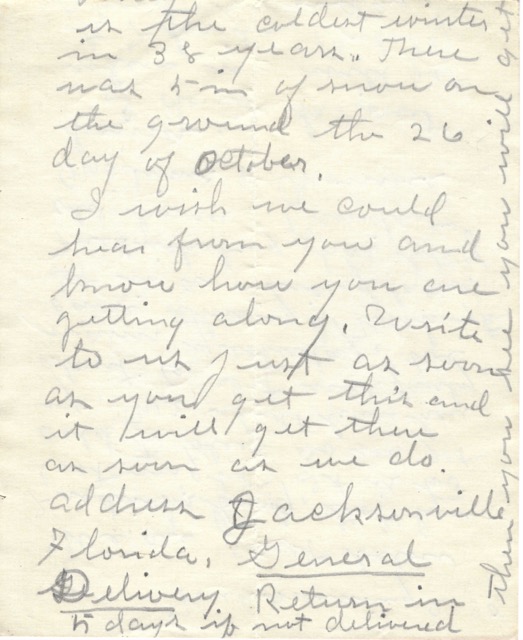 is the coldest winter
in 38 years. There
was 5 in of snow on
the ground the 26
day of October.
I wish we could
hear from you and
know how you are
getting along. Write
to us just as soon
as you get this and
it will get there
as soon as we do.
address Jacksonville
Florida, General
Delivery Return in
5 days if not delivered
then you see you will get